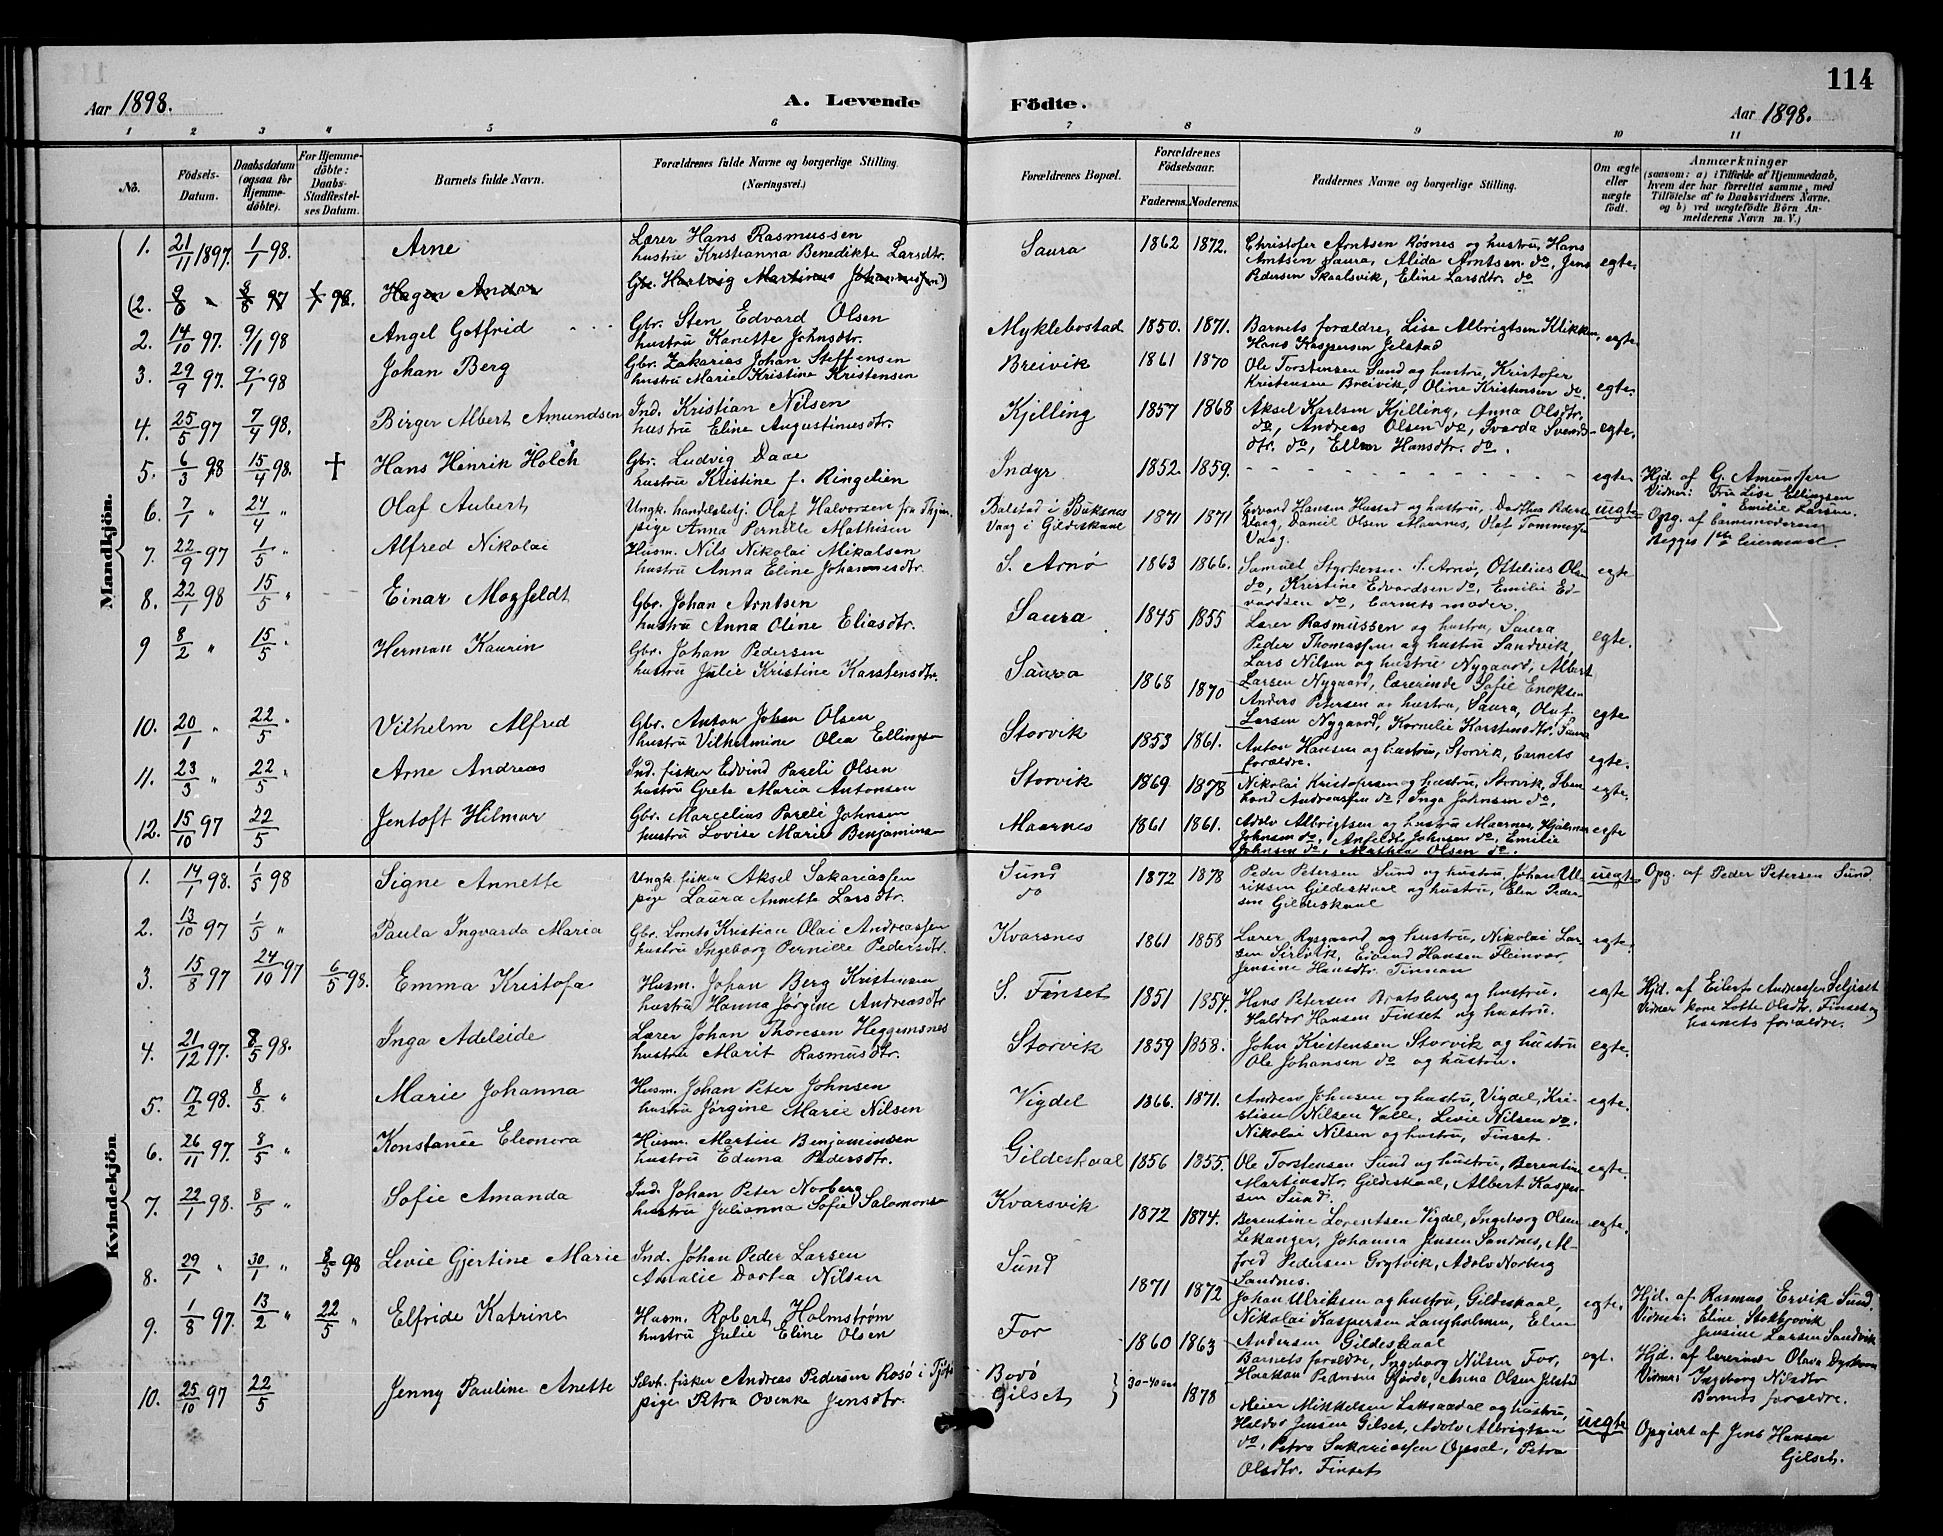 114
Aar 1898.
A. Levende Födte.
Aar 1898.
1 2 3 4 5 6 7 8 9 10 11
No. Födsels-Datum. Daabsdatum (ogsaa for Hjemme-döbte). For Hjemme-döbte: Daabs-Stadfæstel-ses Datum. Barnets fulde Navn. Forældrenes fulde Navne og borgerlige Stilling. (Næringsvei.) Forældrenes Bopæl. Forældrenes Födselsaar. Faderens. Moderens. Faddernes Navne og borgerlige Stilling. Om ægte eller uægte födt. Anmærkninger (saasom: a) i Tilfælde af Hjemmedaab, hvem der har forrettet samme, med Tilföielse af to Daabsvidners Navne, og b) ved uægtefödte Börn An-melderens Navn m. V.)
Mandkjön.
1. 21/11 1897. 1/1 98. Arne
Lærer Hans Rasmussen
hustru Kristianna Benedikte Larsdtr.
Saura 1862 1872.
Christofer Arntsen Røsnes og hustru, Hans
Arntsen Saura, Alida Arntsen do, Jens
Pedersen Skaalsvik, Eline Larsdtr. do
egte.
(2. 98. Hagen Andor
Gbr. Hartvig Martinus Johannessen)
2. 14/10 97. 9/1 98 Angel Gotfrid
Gbr. Sten Edvard Olsen
hustru Kanette Johnsdtr.
Myklebostad 1850. 1871.
Barnets forældre, Lise Albrigtsen Klikken,
Hans Kaspersen Jelstad
egte.
3. 29/9 97. 9/1 98 Johan Berg
Gbr. Zakarias Johan Steffensen
hustru Marie Kristine Kristensen
Breivik 1861 1870
Ole Torstensen Sund og hustru, Kristofer
Kristensen Breivik, Oline Kristensen do.
egte.
4. 25/5 97 7/4 98. Birger Albert Amundsen
Ind. Kristian Nilsen
hustru Eline Augustinusdtr.
Kjelling 1857 1868
Aksel Karlsen Kjelling, Anna Olsdtr.
do, Andreas Olsen do, Svarda Svends-
dtr. do, Ellen Hansdtr. do.
egte.
5. 6/3 98 15/4 98. † Hans Henrik Holch
Gbr. Ludvig Daae
hustru Kristine f. Ringelien
Indyr 1852. 1859. - - - - - - - -
egte.
Hjd. af G. Amundsen
Vidner: Fru Lise Ellingsen
" Emilie Larsen.
6. 7/1 " 24/4 " Olaf Aubert
Ungk. handelsbetj. Olaf Halvorsen fra
pige Anna Pernille Mathisen
Balstad i Buksnes
Vaag i Gildeskaal 1871 1871
Edvard Hansen Hustad og hustru, Dorthea Peders
Vaag, Daniel Olsen Maarnes, Olaf Tommesen
Vaag.
uegte
Opg. af barnemoderen
Begges 1ste leiermaal.
7. 22/9 97 1/5 " Alfred Nikolai
Husm. Nils Nikolai Mikalsen
hustru Anna Eline Johannesdtr.
S. Arnø 1863 1866.
Samuel Styrkersen S. Arnø, Ottelius Olsen
do, Kristine Edvardsen do, Emilie Ed-
vardsen do, barnets moder.
egte
8. 22/1 98 15/5 " Einar Mogfeldt
Gbr. Johan Arntsen
hustru Anna Oline Eliasdtr.
Saura 1845 1855
Lærer Rasmussen og hustru, Saura
Peder Thomassen og hustru Sandvik,
Lars Nilsen og hustru Nygaard, Albert
egte.
9 8/2 " 15/5 " Herman Kaurin
Gbr. Johan Pedersen
hustru Julie Kristine Karstensdtr.
Saura 1868 1870
Larsen Nygaard, Lærerinde Sofie Enoksen
Anders Petersen og hustru, Saura, Oluf
Larsen Nygaard, Kornelie Karstensdtr. Saura
egte
10. 20/1 " 22/5 " Vilhelm Alfred
Gbr. Anton Johan Olsen
hustru Vilhelmine Olea Ellingsen
Storvik 1853 1861.
Anton Hansen og hustru, Storvik, barnets
forældre.
egte.
11. 23/3 " 22/5 " Arne Andreas
Ind. fisker Edvind Pareli Olsen
hustru Grete Maria Antonsen
Storvik 1869 1878
Nikolai Kristofersen og hustru, Storvik,
Andreassen do, Inga Johnsen do,
egte.
12. 15/10 97 22/5 Jentoft Hilmar
Gbr. Marcelius Pareli Johnsen
hustru Lovise Marie Benjaminsen
Maarnes 1861 1861.
Adolv Albrigtsen og hustru Maarnes, Hjalmar
Johnsen do, Anfeldt Johnsen do, Emilie
Johnsen do, Mathea Olsen do.
egte
Kvindekjön.
1. 14/1 98. 1/5 98 Signe Annette
Ungk. fisker Aksel Sakariassen
pige Laura Annette Larsdtr.
Sund
do 1872 1878
Peder Petersen Sund og hustru, Johan Ul-
riksen Gildeskaal og hustru, Elen Peder-
sen Gildeskaal
uegte
Opg. af Peder Petersen Sund.
2. 13/10 97 1/5 " Paula Ingvarda Maria
Gbr. Lorents Kristian Olai Andreassen
hustru Ingeborg Pernille Pedersdtr.
Kvarsnes 1861 1858
Lærer Rysgaard og hustru, Nikolai Lar-
sen Sirlvik, Eivind Hansen Fleinvær,
Jensine Hansdtr. Finnan
egte.
3. 15/8 97 24/10 97 6/5 98. Emma Kristofa
Husm. Johan Berg Kristensen
hustru Hanna Jørgine Andreasdtr
S. Finset 1851 1854.
Hans Petersen Bratsberg og hustru.
Haldor Hansen Finset og hustru.
egte
Hjd. af Eilert Anderssen Seljeset
Vidner kone Lotte Olsdtr. Finset og
barnets forældre.
4. 21/12 97. 8/5 98. Inga Adeleide
Lærer Johan Thoresen Heggemsnes
hustru Marit Rasmusdtr.
Storvik 1859 1858.
John Kristensen Storvik og hustru
Ole Johansen do og hustru.
egte.
5. 17/2 98. 8/5 " Marie Johanna
Husm. Johan Peter Johnsen
hustru Jørgine Marie Nilsen
Vigdel 1866. 1871.
Andreas Johnsen og hustru, Vigdel, Kri-
stian Nilsen Valle, Levie Nilsen do.
Nikolai Nilsen og hustru, Finset.
egte.
6. 26/11 97. 8/5 " Konstanse Eleonora
Husm. Martin Benjaminsen
hustru Eduna Pedersdtr.
Gildeskaal 1856 1855.
Ole Torstensen Sund og hustru, Berentine
Martinsdtr. Gildeskaal, Albert Kasper-
sen Sund.
egte.
7. 22/1 98. 8/5 " Sofie Amanda
Ind. Johan Peter Norberg
hustru Julianna Sofie Salomons
Kvarsvik 1872 1874.
Berentine Lorentsen Vigdel, Ingeborg Olsen
Lekanger, Johanna Jensen Sandnes, Al-
fred Pedersen Grytvik, Adolv Norberg
Sandnes.
egte.
8. 29/1 " 30/1 " 8/5 98 Levie Gjertine Marie
Ind. Johan Peder Larsen
Amalie Dortea Nilsen
Sund 1871 1872
Johan Ulriksen og hustru, Gildeskaal,
Nikolai Kaspersen Langholmen, Elen
Andersen Gildeskaal
egte.
Hjd. af Rasmus Ervik Sund.
Vidner: Eline Stokbrovik
Jensine Larsen Sandvik
9. 1/8 97. 13/2 " 22/5 " Elfride Katrine
Husm. Robert Holmstrøm
hustru Julie Eline Olsen
For 1860 1863
Barnets forældre, Ingeborg Nilsen For,
Haakon Pedersen Gjorde, Anna Olsen Jelstad
egt.
Hjd. af lærerinde Olava Dyrhaug
Vidner: Ingeborg Nilsdtr
Barnets forældre.
10. 25/10 97 22/5 Jenny Pauline Anette
fisker Andreas Pedersen Rosø i Tjøtø
pige Petra Ovenke Jensdtr.
Bodø
Gilset } 30-40 aar 1878
Meier Mikkelsen Laksaadal og hustru,
Haldor Jensen Gilset, Adolv Albrigtsen
do, Petra Sakariassen Opsal, Petra
Olsdtr. Finset
uegte
Opgivet af Jens Hansen
Gilset.